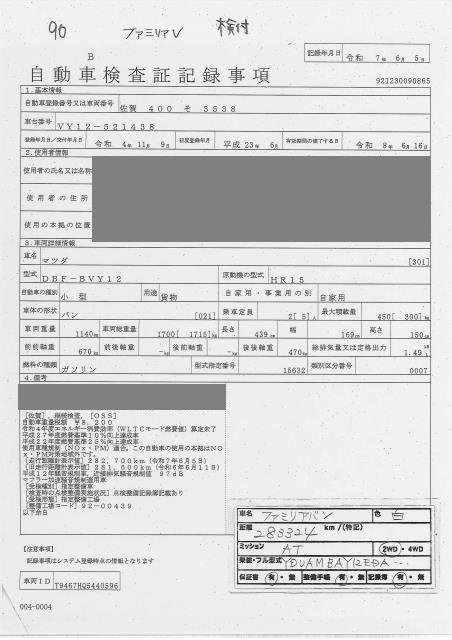 90 ファミリアV 検付
記録年月日 令和 7年 6月 5日
B
自動車検査証記録事項
921230090865
1.基本情報
自動車登録番号又は車両番号 佐賀 400 そ 3538
車台番号 VY12-521438
登録年月日/交付年月日 令和 4年 11月 9日 初度登録年月 平成 23年 6月 有効期間の満了する日 令和 8年 6月 16日
2.使用者情報
使用者の氏名又は名称
使用者の住所
使用の本拠の位置
3.車両詳細情報
車名 マツダ [301]
型式 DBF-BVY12 原動機の型式 HR15
自動車の種別 小型 用途 貨物 自家用・事業用の別 自家用
車体の形状 バン [021] 乗車定員 2[ 5]人 最大積載量 450[ 300]kg
車両重量 1140kg 車両総重量 1700[ 1715]kg 長さ 439cm 幅 169cm 高さ 150cm
前前軸重 670kg 前後軸重 -kg 後前軸重 -kg 後後軸重 470kg 総排気量又は定格出力 1.49L
燃料の種類 ガソリン 型式指定番号 15632 類別区分番号 0007
4.備考
[佐賀], 継続検査, [OSS]
自動車重量税額 ¥8,200
令和4年度エネルギー消費効率(WLTCモード燃費値)算定未了
平成27年度燃費基準10%向上達成車
平成22年度燃費基準25%向上達成車
使用車種規制(NOx・PM)適合, この自動車の使用の本拠はNO
x・PM対策地域外です。
[走行距離計表示値] 282,700km(令和7年6月5日)
[旧走行距離計表示値] 251,600km(令和6年6月11日)
平成12年騒音規制車, 近接排気騒音規制値 97dB
マフラー加速騒音規制適用車
[受検種別] 指定整備車
[検査時の点検整備実施状況] 点検整備記録簿記載あり
[受検形態] 指定整備工場
[整備工場コード] 92-00439
以下余白
車名 ファミリアバン 色 白
距離 283324 km/(特記)
ミッション AT 2WD・4WD
架装・フル型式
保証書 有・無 整備手帳 有・無 記録簿 有・無
【注意事項】
記録事項はシステム登録時点の情報となります
車両ID T9467HQ5440596
004-0004